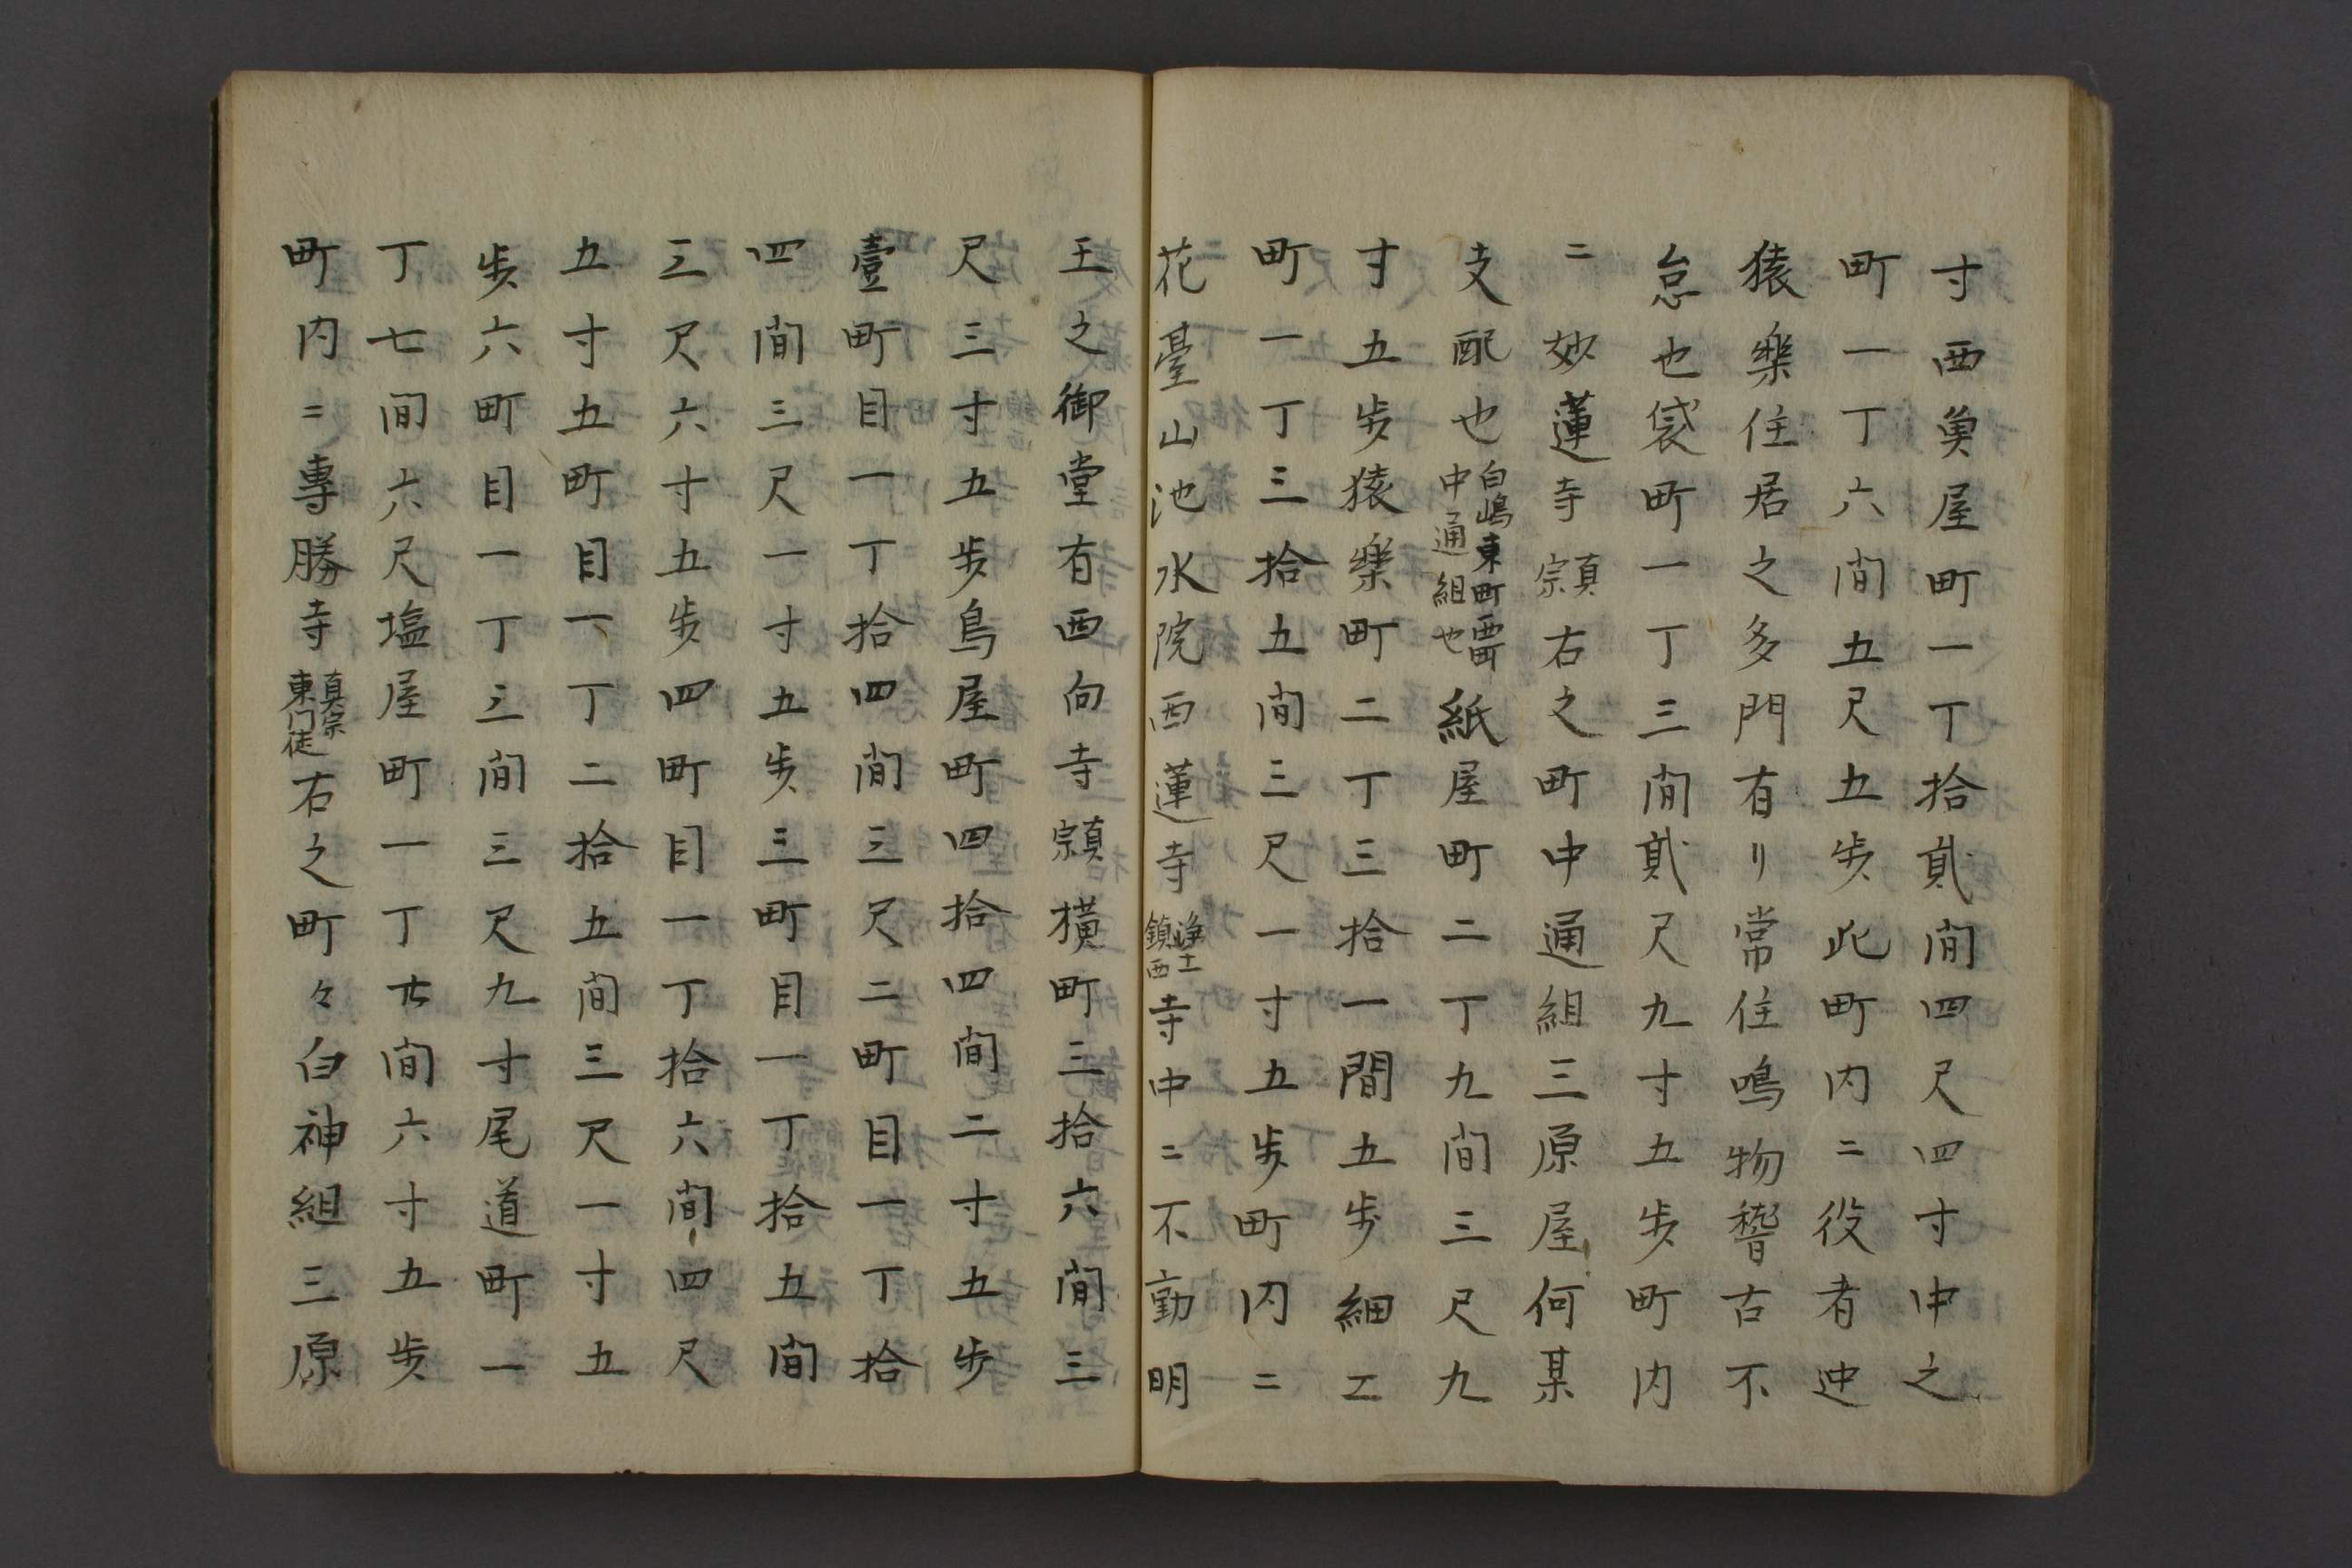 寸西魚屋町一丁拾貳間四尺四寸中之
町一丁六間五尺五歩此町内ニ役者中
猿樂住居之多門有リ常住鳴物稽古不
怠也袋町一丁三間貳尺九寸五歩町内
ニ妙蓮寺真宗右之町中通組三原屋何某
支配也白嶋東町西町中通組也紙屋町二丁九間三尺九
寸五歩猿樂町二丁三拾一間五歩細工
町一丁三拾五間三尺一寸五歩町内ニ
花臺山池水院西蓮寺浄土鎮西寺中ニ不動明
王之御堂有西向寺真宗横町三拾六間三
尺三寸五歩鳥屋町四拾四間二寸五歩
壹町目一丁拾四間三尺二町目一丁拾
四間三尺一寸五歩三町目一丁拾五間
三尺六寸五歩四町目一丁拾六間四尺
五寸五町目一丁二拾五間三尺一寸五
歩六町目一丁三間三尺九寸尾道町一
丁七間六尺塩屋町一丁廿間六寸五歩
町内ニ專勝寺真宗東門徒右之町々白神組三原